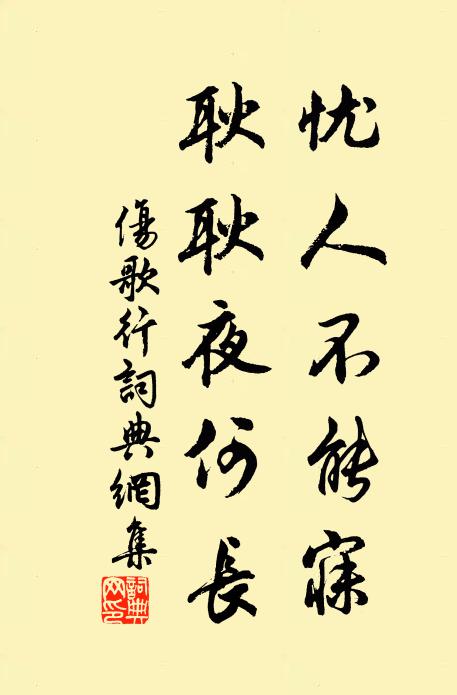 忧人不能寐
耿耿夜何長
傷歌行詞典網集
詞典网印